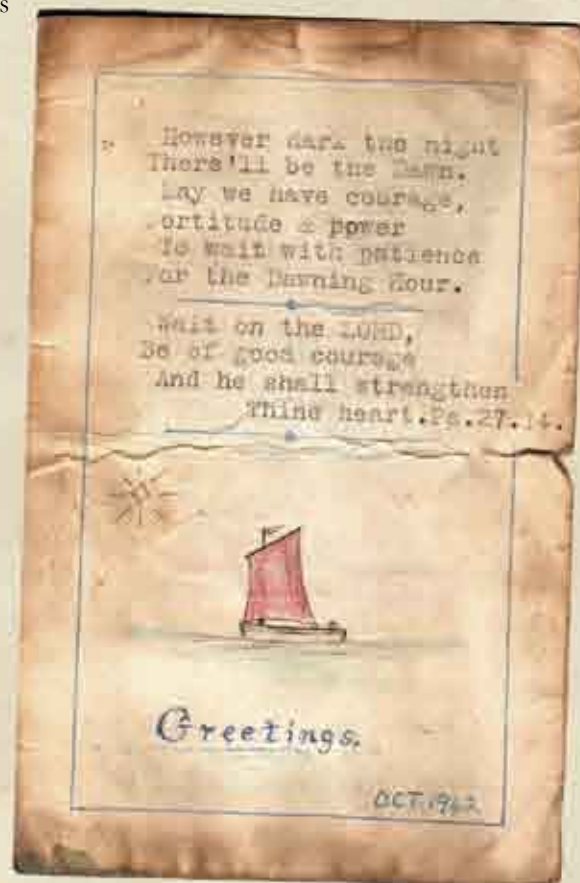 s
However dark the night
There'll be the Dawn.
May we have courage,
Fortitude & power
To wait with patience
For the Dawning Hour.
Wait on the LORD,
Be of good courage
And he shall strengthen
Thine heart.Ps.27.14.
Greetings.
OCT.1942